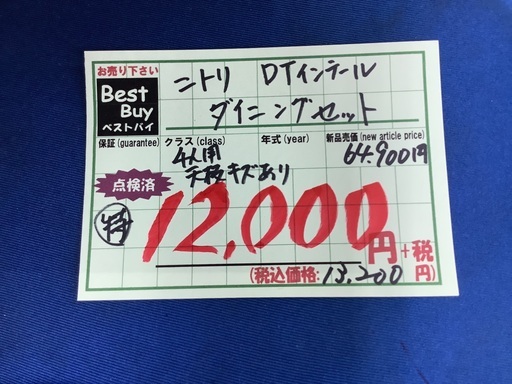 お売り下さい
Best Buy
ベストバイ
ニトリ DTインテール
ダイニングセット
保証(guarantee) クラス(class) 年式(year) 新品売価(new article price)
4人用 64.900円
天板キズあり
点検済
12,000円+税
(税込価格: 13,200円)